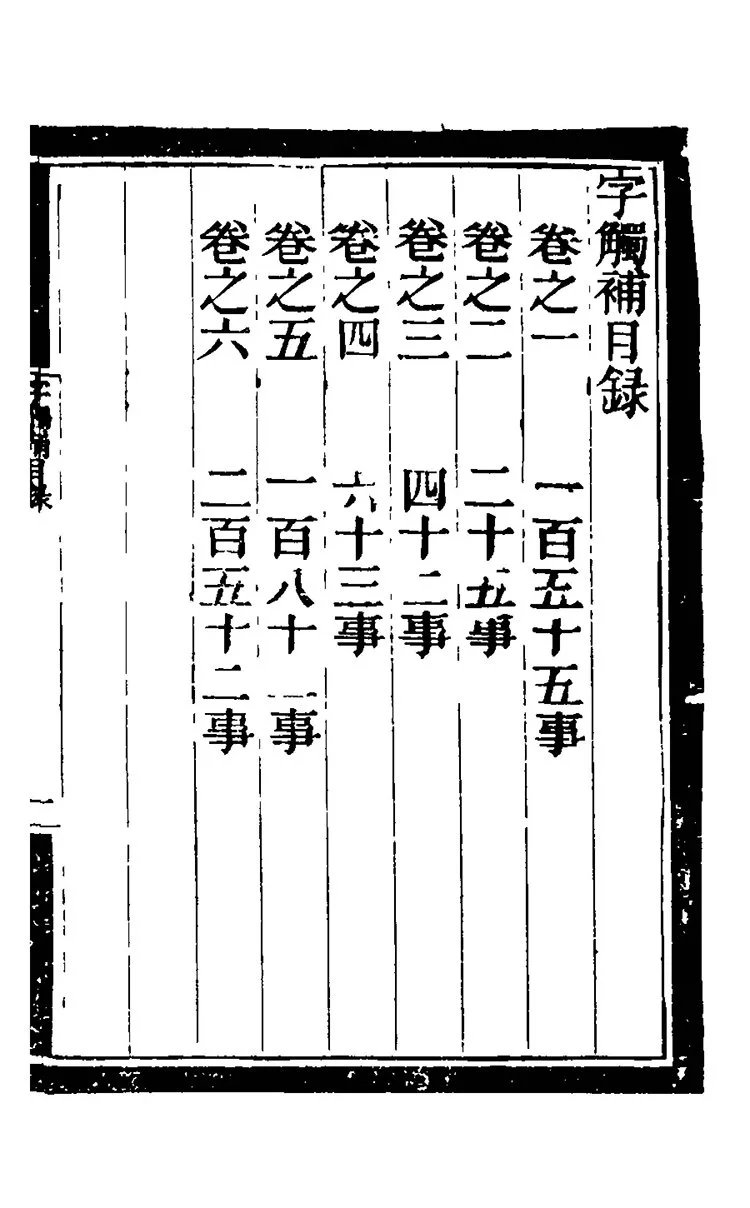 字觸補目録
卷之一 一百五十五事
卷之二 二十五事
卷之三 四十二事
卷之四 六十三事
卷之五 一百八十二事
卷之六 二百五十二事
字觸補目録